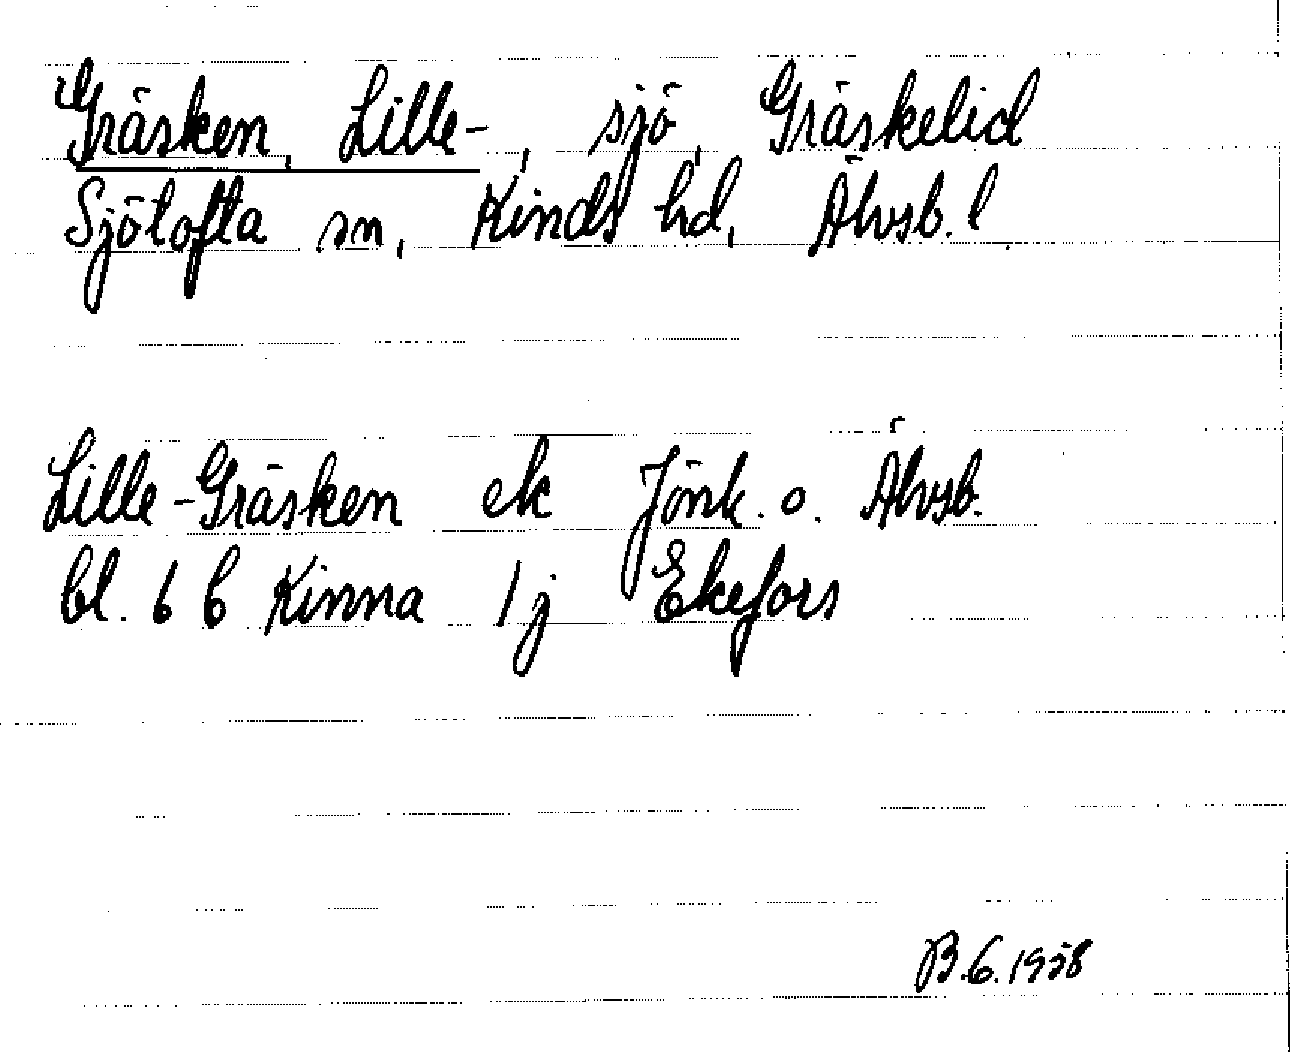 Gräsken, Lille-, sjö, Gräskelid
Sjötofta sn, Kinds hd, Älvsb. l
Lille-Gräsken ek Jönk. o. Älvsb.
bl. 6 b Kinna 1 j Ekefors
B.6.1958